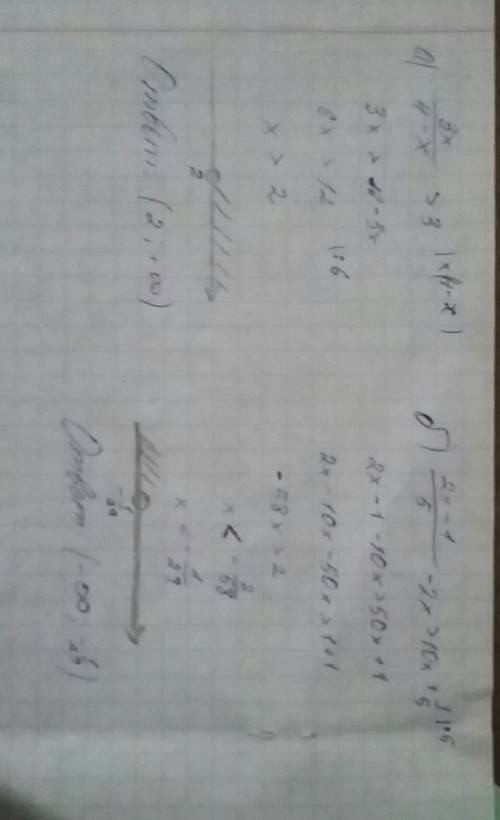 а) 3x/(4-x) > 3 | ×(4-x)
3x > 12-3x
6x > 12 | :6
x > 2
2
Ответ: (2; +∞)
б) (2x-1)/5 - 2x > 10x + 1/5 | ·5
2x-1-10x > 50x+1
2x-10x-50x > 1+1
-58x > 2
x < -2/58
x < -1/29
-1/29
Ответ (-∞; -1/29)